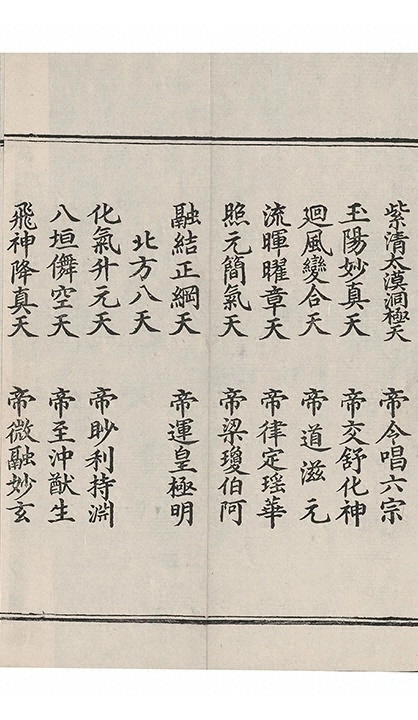 紫清太漠洞極天　帝令唱六宗
玉陽妙真天　帝交舒化神
廻風變合天　帝道滋元
流暉曜章天　帝律定瑤華
照元簡氣天　帝梁瓊伯阿
融結正綱天　帝運皇極明
北方八天
化氣升元天　帝眇利持淵
八垣儛空天　帝至沖猷生
飛神降真天　帝微融妙玄